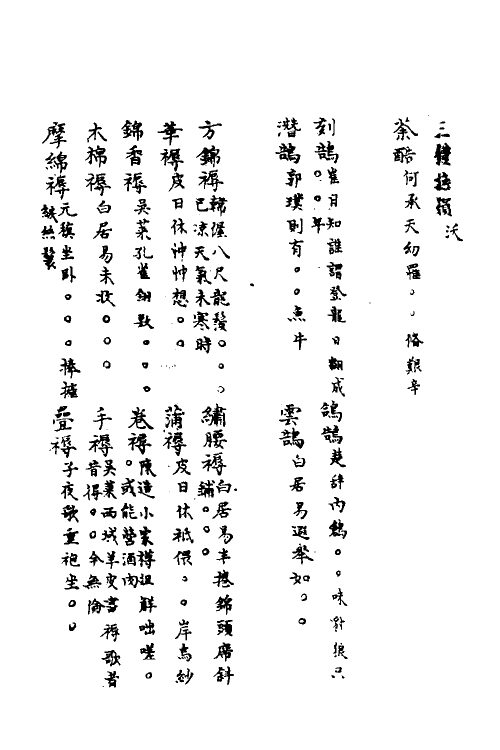 三體摭韻 沃
荼酷 何承天幼罹。。備艱辛
刻鵠 崔日知誰謂登龍日翻成。。年
鴿鵠 楚辞內鶬。。味豺狼只
潛鵠 郭璞則有。。魚牛
雲鵠 白居易遐舉如。。
方錦褥 韓偓八尺龍鬚。。。已凉天氣未寒時
繡腰褥 白居易半捲錦頭席斜鋪。。。
華褥 皮日休忡忡想。。
蒲褥 皮日休祇偎。。岸烏紗
錦香褥 吳萊孔雀翎毀。。。
卷褥 陳造小家褥。或能營酒肉
木棉褥 白居易未收。。。
手褥 吳萊西域羊皮書褥歌昔昔得。。今無倫
摩綿褥 元稹坐卧。。。捧擁縰絲鬟
疊褥 子夜歌重袍坐。。